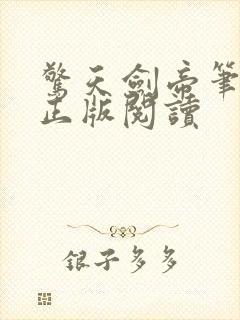 驚天劍帝筆
正版閱讀
銀子多多